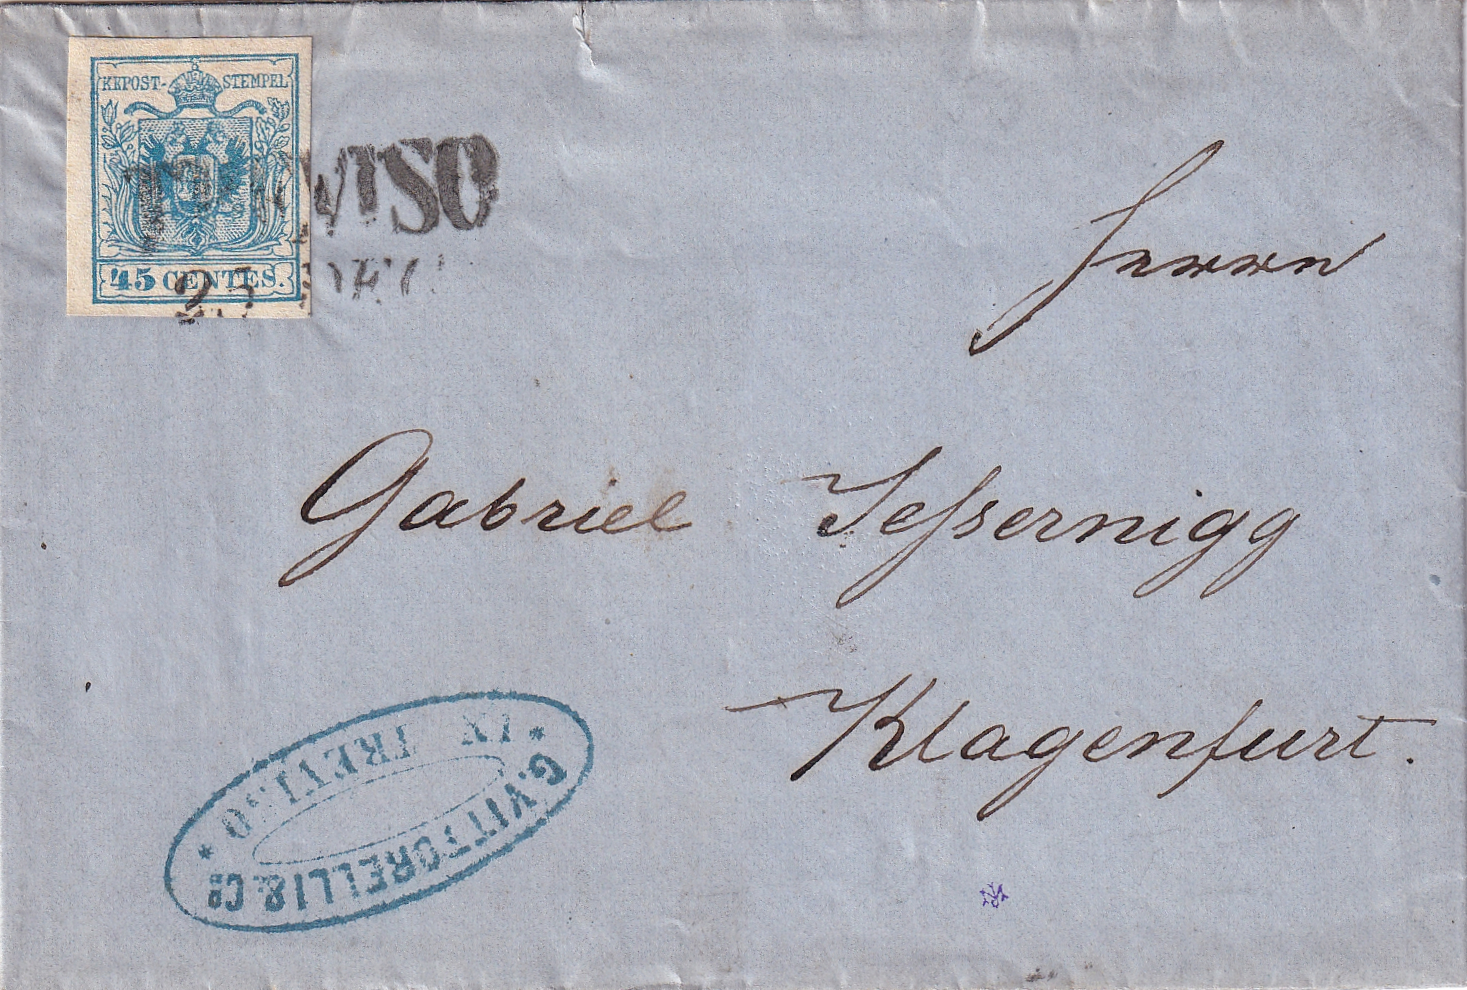 KKPOST-STEMPEL
45 CENTES.
TREVISO
DEC
Herrn
Gabriel Jeſsernigg
Klagenfurt.
G. VITTORELLI & Co
* IN TREVISO *